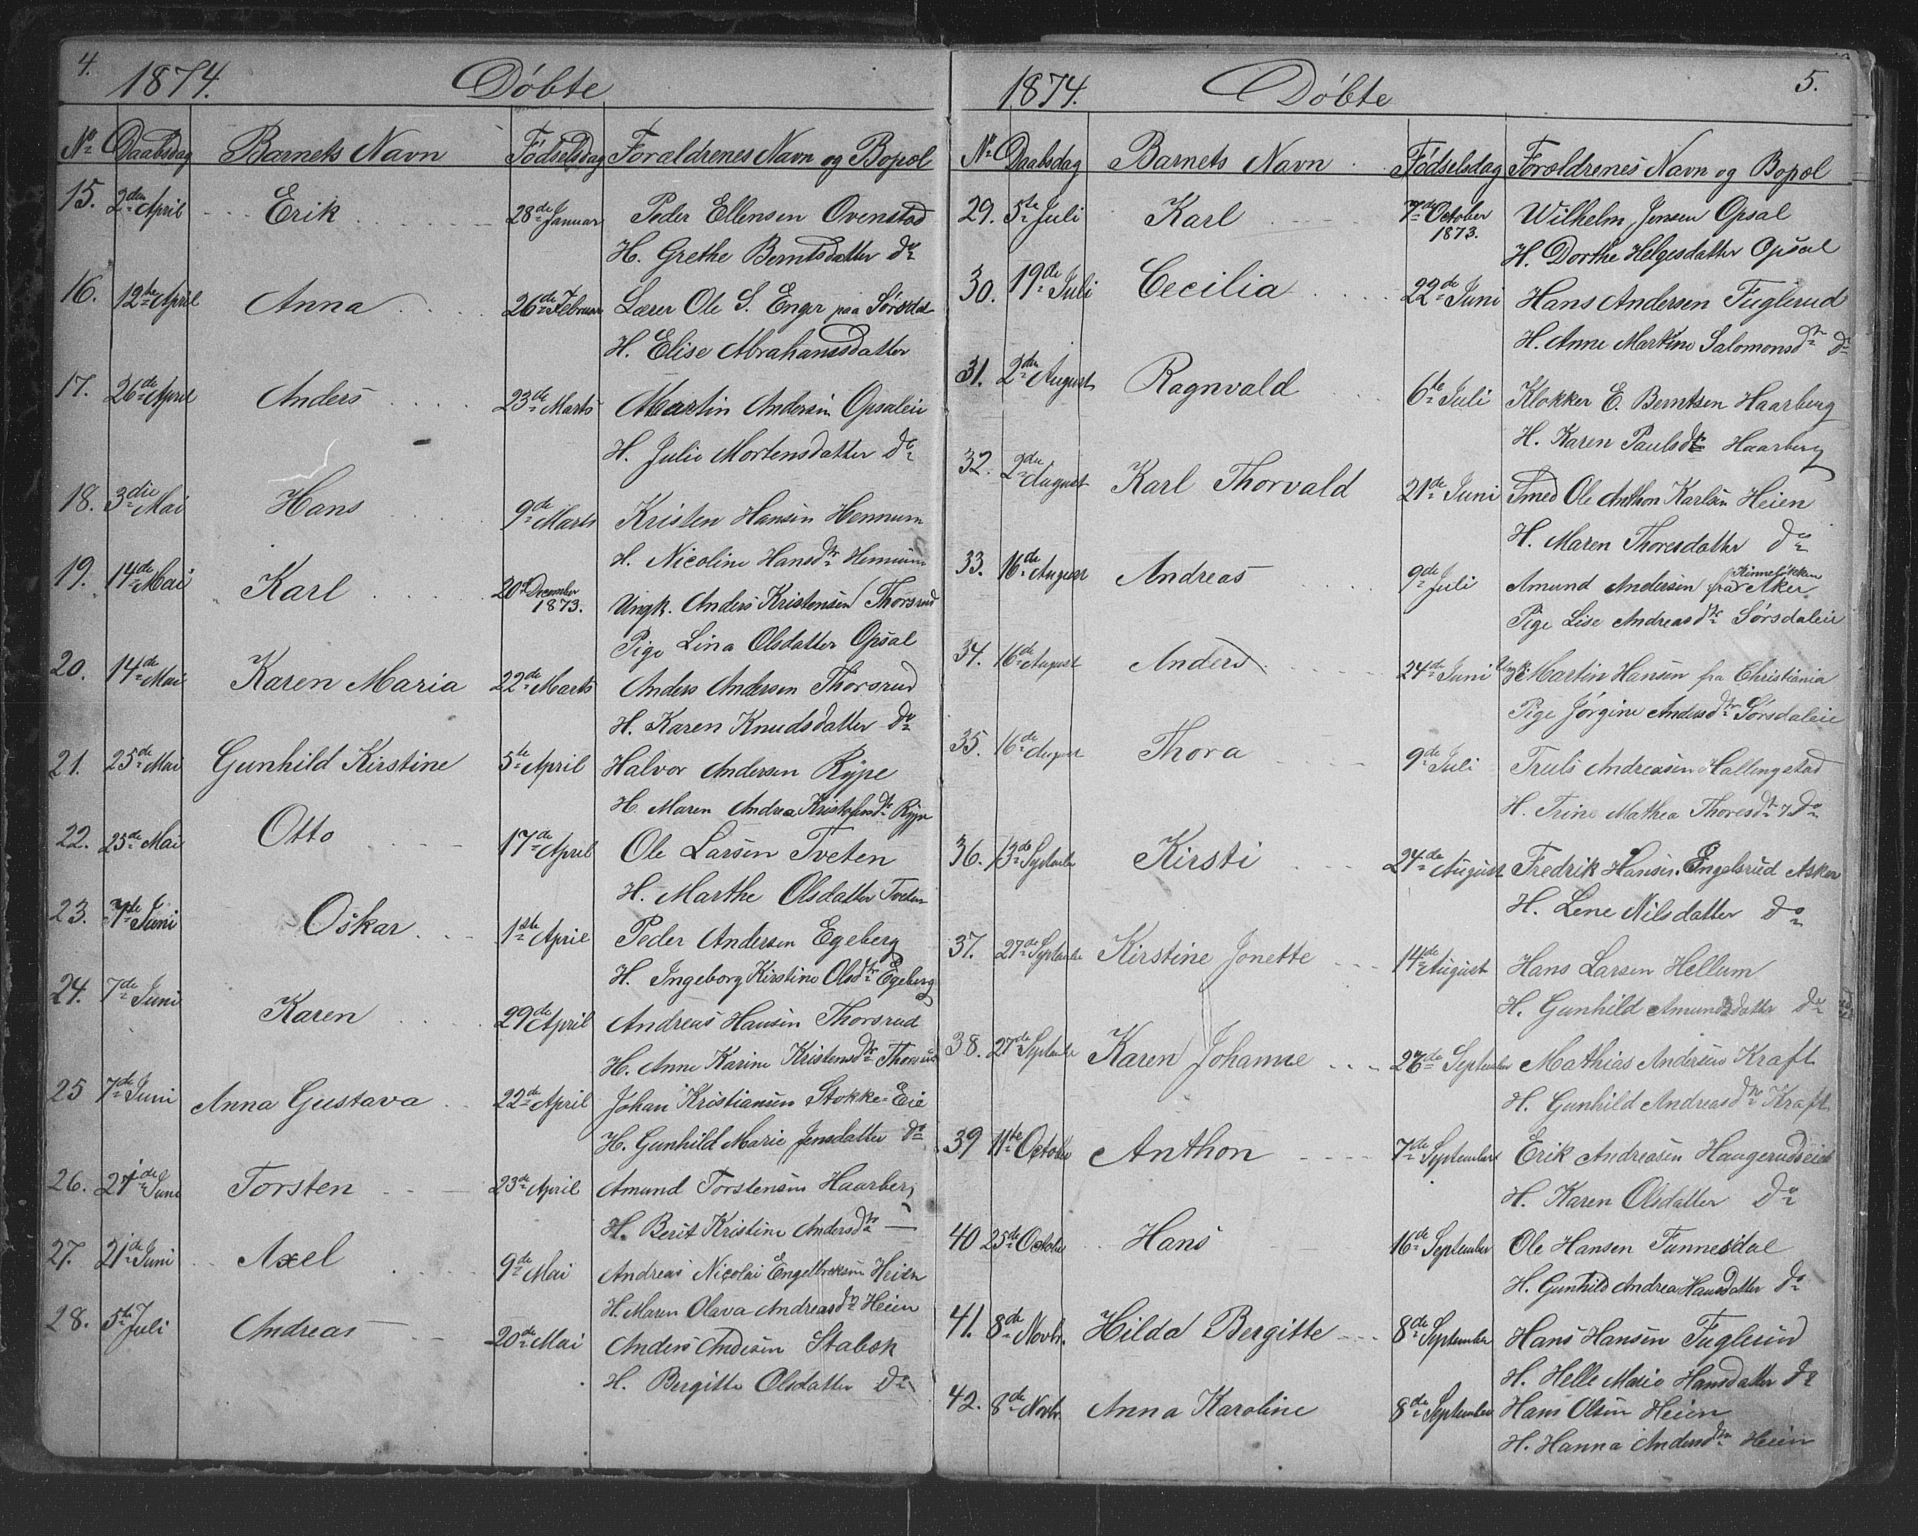 4.
1874. Döbte
No Daabsdag Barnets Navn Födselsdag Forældrenes Navn og Bopæl
15. 2den April Erik 28de Januar Peder Ellensen Ovenstad
H. Grethe Berntsdatter do
16. 12te April Anna 26de Februar Lærer Ole S. Enger paa Sörsdal
H. Elise Abrahamsdatter
17. 26de April Anders 23de Marts Martin Andersen Opsaleie
H. Julie Mortensdatter do
18. 3die Mai Hans 9de Marts Kristen Hansen Hennum
H. Nicoline Hansdtr Hennum
19. 14de Mai Karl 20de December 1873. Ungk. Anders Kristensen Thorsrud
Pige Lina Olsdatter Opsal
20. 14de Mai Karen Maria 22de Marts Anders Andersen Thorsrud
H. Karen Knudsdatter do
21. 25de Mai Gunhild Kirstine 5te April Halvor Andersen Rype
H. Maren Andrea Kristofersdtr Rype
22. 25de Mai Otto 17de April Ole Larsen Tveten
H. Marthe Olsdatter Tveten
23. 7de Juni Oskar 1ste April Peder Andersen Egeberg
H. Ingeborg Kirstine Olsdtr Egeberg
24. 7de Juni Karen 29de April Andreas Hansen Thorsrud
H. Anne Karine Kristensdtr Thorsrud
25 7de Juni Anna Gustava 22de April Johan Kristiansen Stokke-Eie
H. Gunhild Marie Jensdatter do
26. 21de Juni Torsten 23de April Amund Torstensen Haarberg
H. Berit Kristine Andersdtr —
27. 21de Juni Axel 9de Mai Andreas Nicolai Engelbreksen Heien
H. Maren Olava Andreasdtr Heien
28. 5te Juli Andreas 20de Mai Anders Andersen Stabek
H. Bergitte Olsdatter do
5.
1874. Döbte
No Daabsdag Barnets Navn Födselsdag Forældrenes Navn og Bopæl
29. 5te Juli Karl 7de October 1873. Wilhelm Jensen Opsal
H. Dorthe Helgesdatter Opsal
30. 19de Juli Cecilia 22de Juni Hans Andersen Fuglerud
H. Anne Martine Salomonsdtr do
31. 2den August Ragnvald 6te Juli Klokker E. Berntsen Haarberg
H. Karen Paulsdtr Haarberg
32. 2den August Karl Thorvald 21de Juni Smed Ole Anthon Karlsen Heien
H. Maren Thoresdatter do
33. 16de August Andreas 9de Juli Amund Andersen fra Aker
Pige Lise Andreasdtr Sörsdaleie
34. 16de August Anders 24de Juni Ungk. Martin Hansen fra Christiania
Pige Jörgine Andersdtr Sörsdaleie
35. 16de August Thora 9de Juli Truls Andreasen Hallingstad
H. Trine Mathea Thoresdtr do
36. 13de Septembr Kirsti 24de August Fredrik Hansen Engelsrud Asker
H. Lene Nilsdatter do
37. 27de Septembr Kirstine Jonette 14de August Hans Larsen Hellum
H. Gunhild Amundsdatter do
38. 27de Septembr Karen Johanne 26de September Mathias Andersen Kraft
H. Gunhild Andreasdtr Kraft
39 11te October Anthon 7de September Erik Andreasen Haugerudseie
H. Karen Olsdatter do
40 25de October Hans 16de September Ole Hansen Tunnesdal
H. Gunhild Andrea Hansdatter do
41. 8de Novbr. Hilda Bergitte 8de September Hans Hansen Fuglerud
H. Helle Marie Hansdatter do
42. 8de Novbr. Anna Karoline 8de September Hans Olsen Heien
H. Hanna Andersdtr Heien